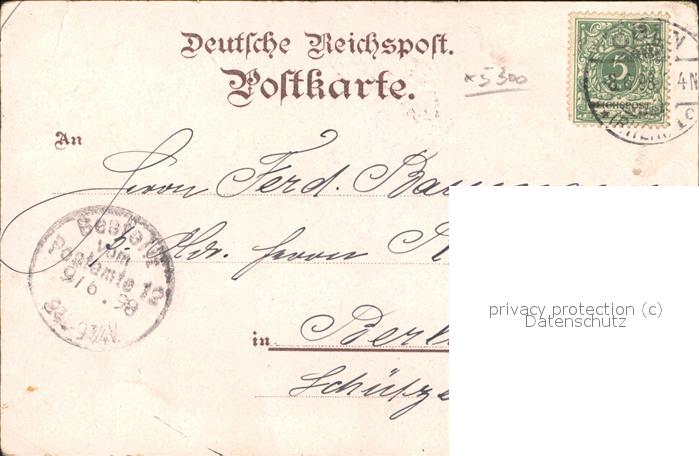 Deutsche Reichspost.
Postkarte.
5300
5
REICHSPOST
8.6.98. 4N
An
Herrn Ferd.
p. Adr. Herrn
in
Bestellt
vom
Postamte 12
9/6.98
privacy protection (c)
Datenschutz